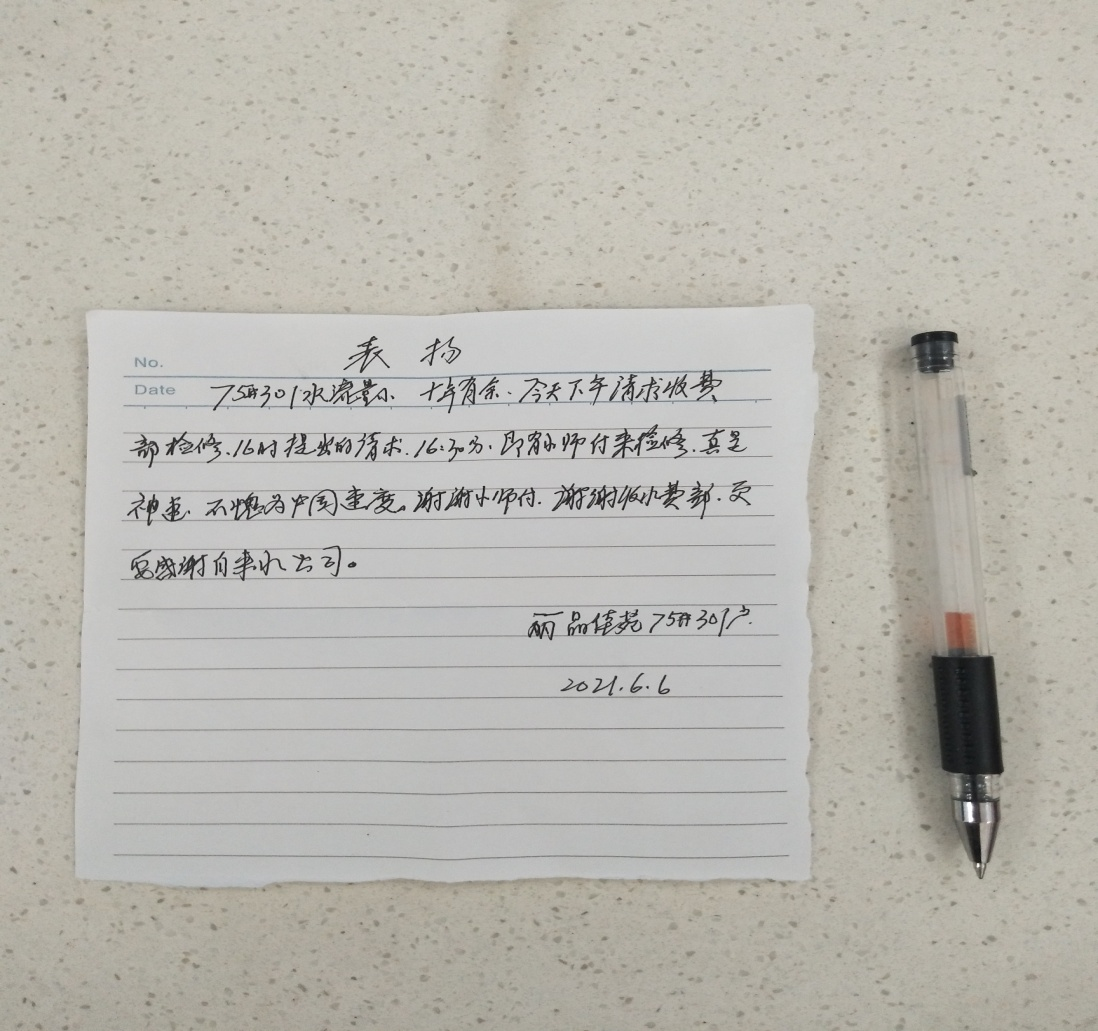 No.
表 扬
Date
75#301水流量小、十年有余、今天下午请求收费
部检修、16时提出的请求、16:30分、即有小师付来检修、真是
神速、不愧为中国速度。谢谢小师付、谢谢收水费部、更
要感谢自来水公司。
丽品佳苑75#301户
2021.6.6